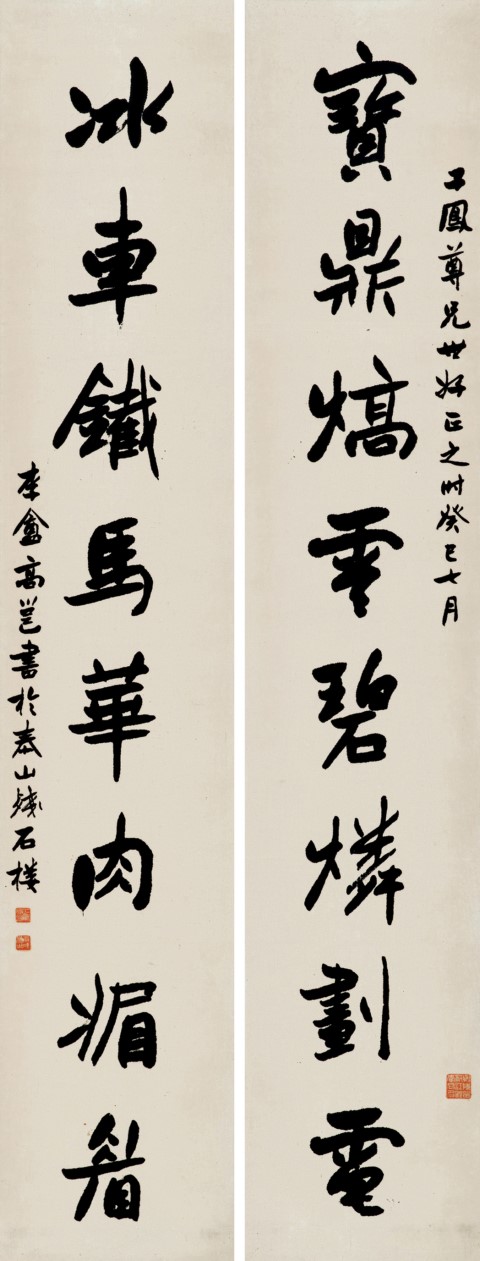 子鳳尊兄世好正之時癸巳七月
寶鼎熇雲碧燐劃電
冰車鐵馬華肉
李盦高邕書於泰山殘石樓